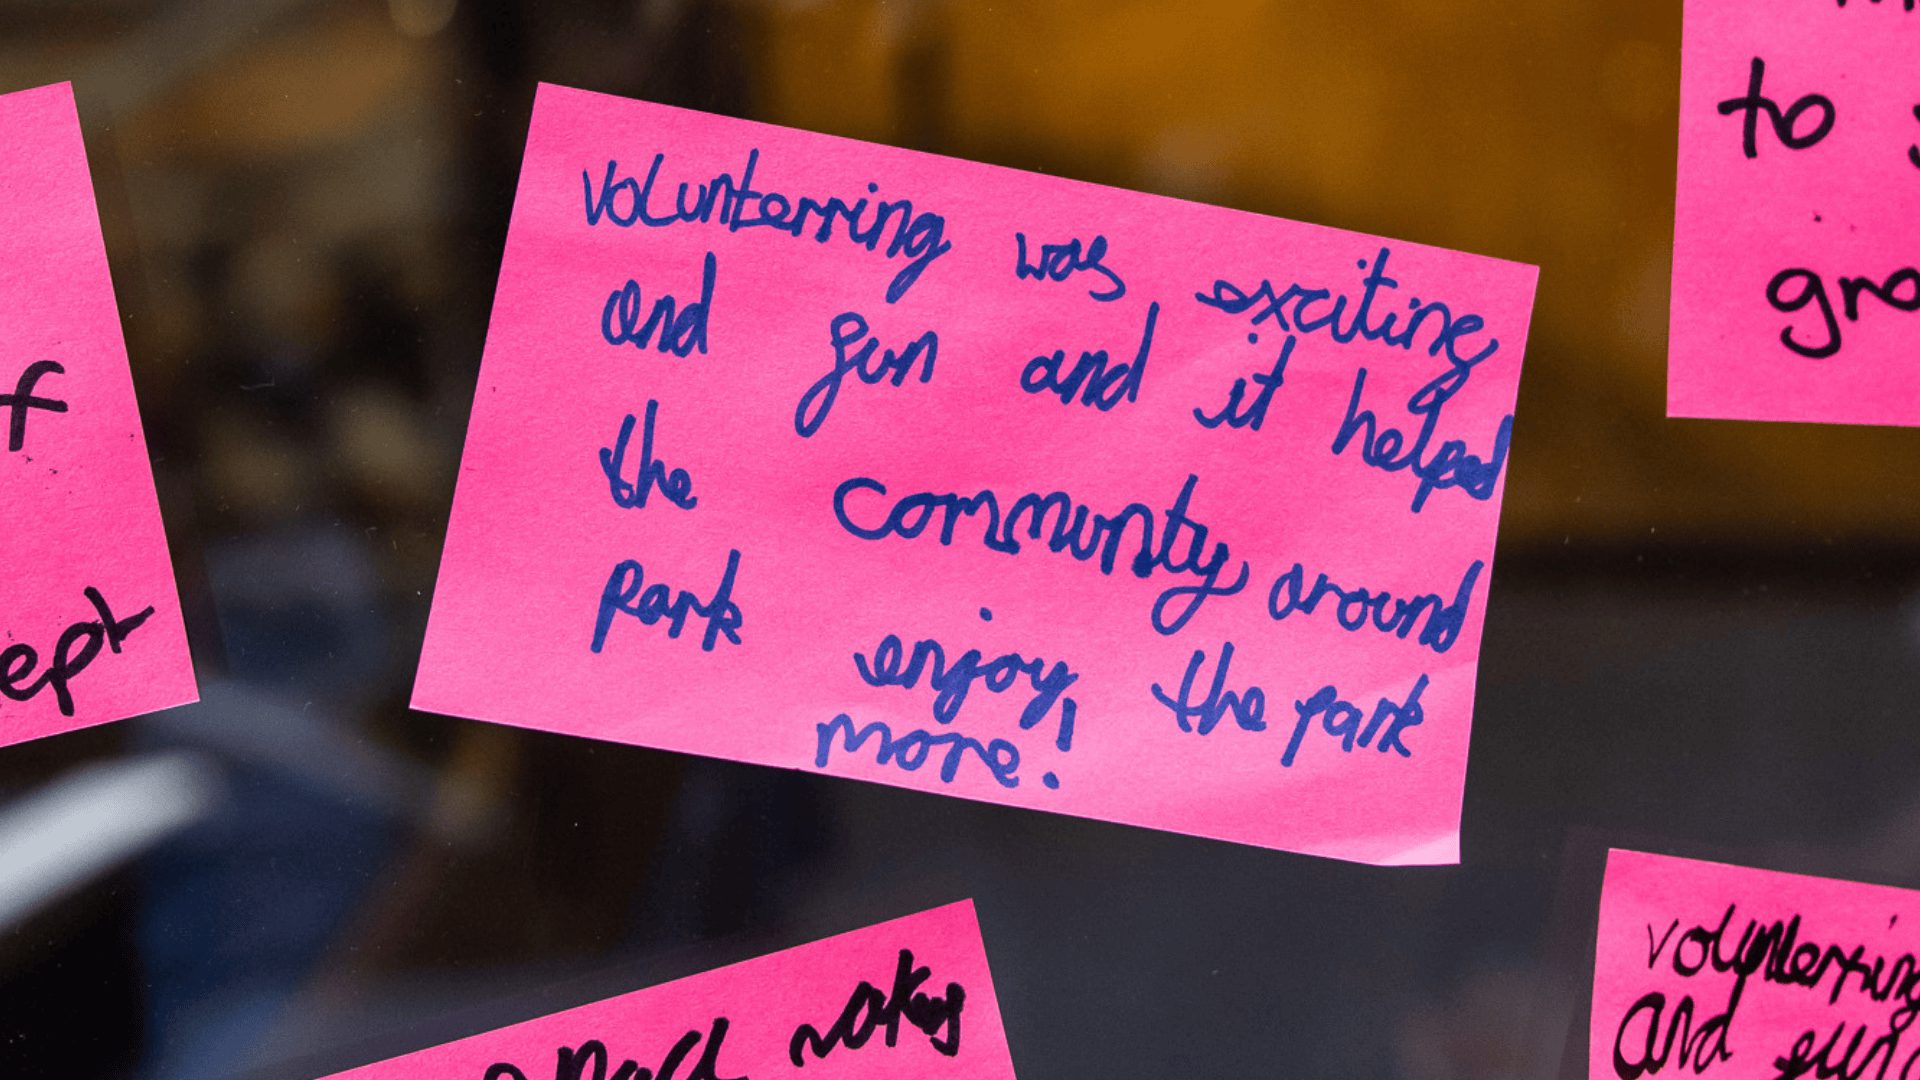 volunterring was exciting
and fun and it helped
the communty around
park enjoy the park
more!
to
f
ept
volunterring
and